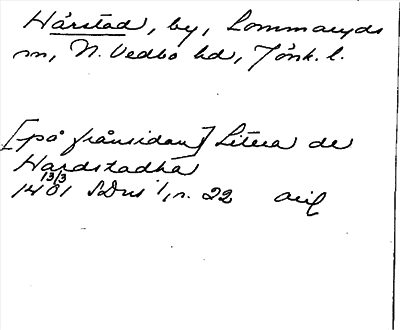 Hårstad, by, Lommaryds
sn, N. Vedbo hd, Jönk. l.
[på frånsidan] Litera de
Hardstadha
13/3
1401 SDns 1, n. 22 orig